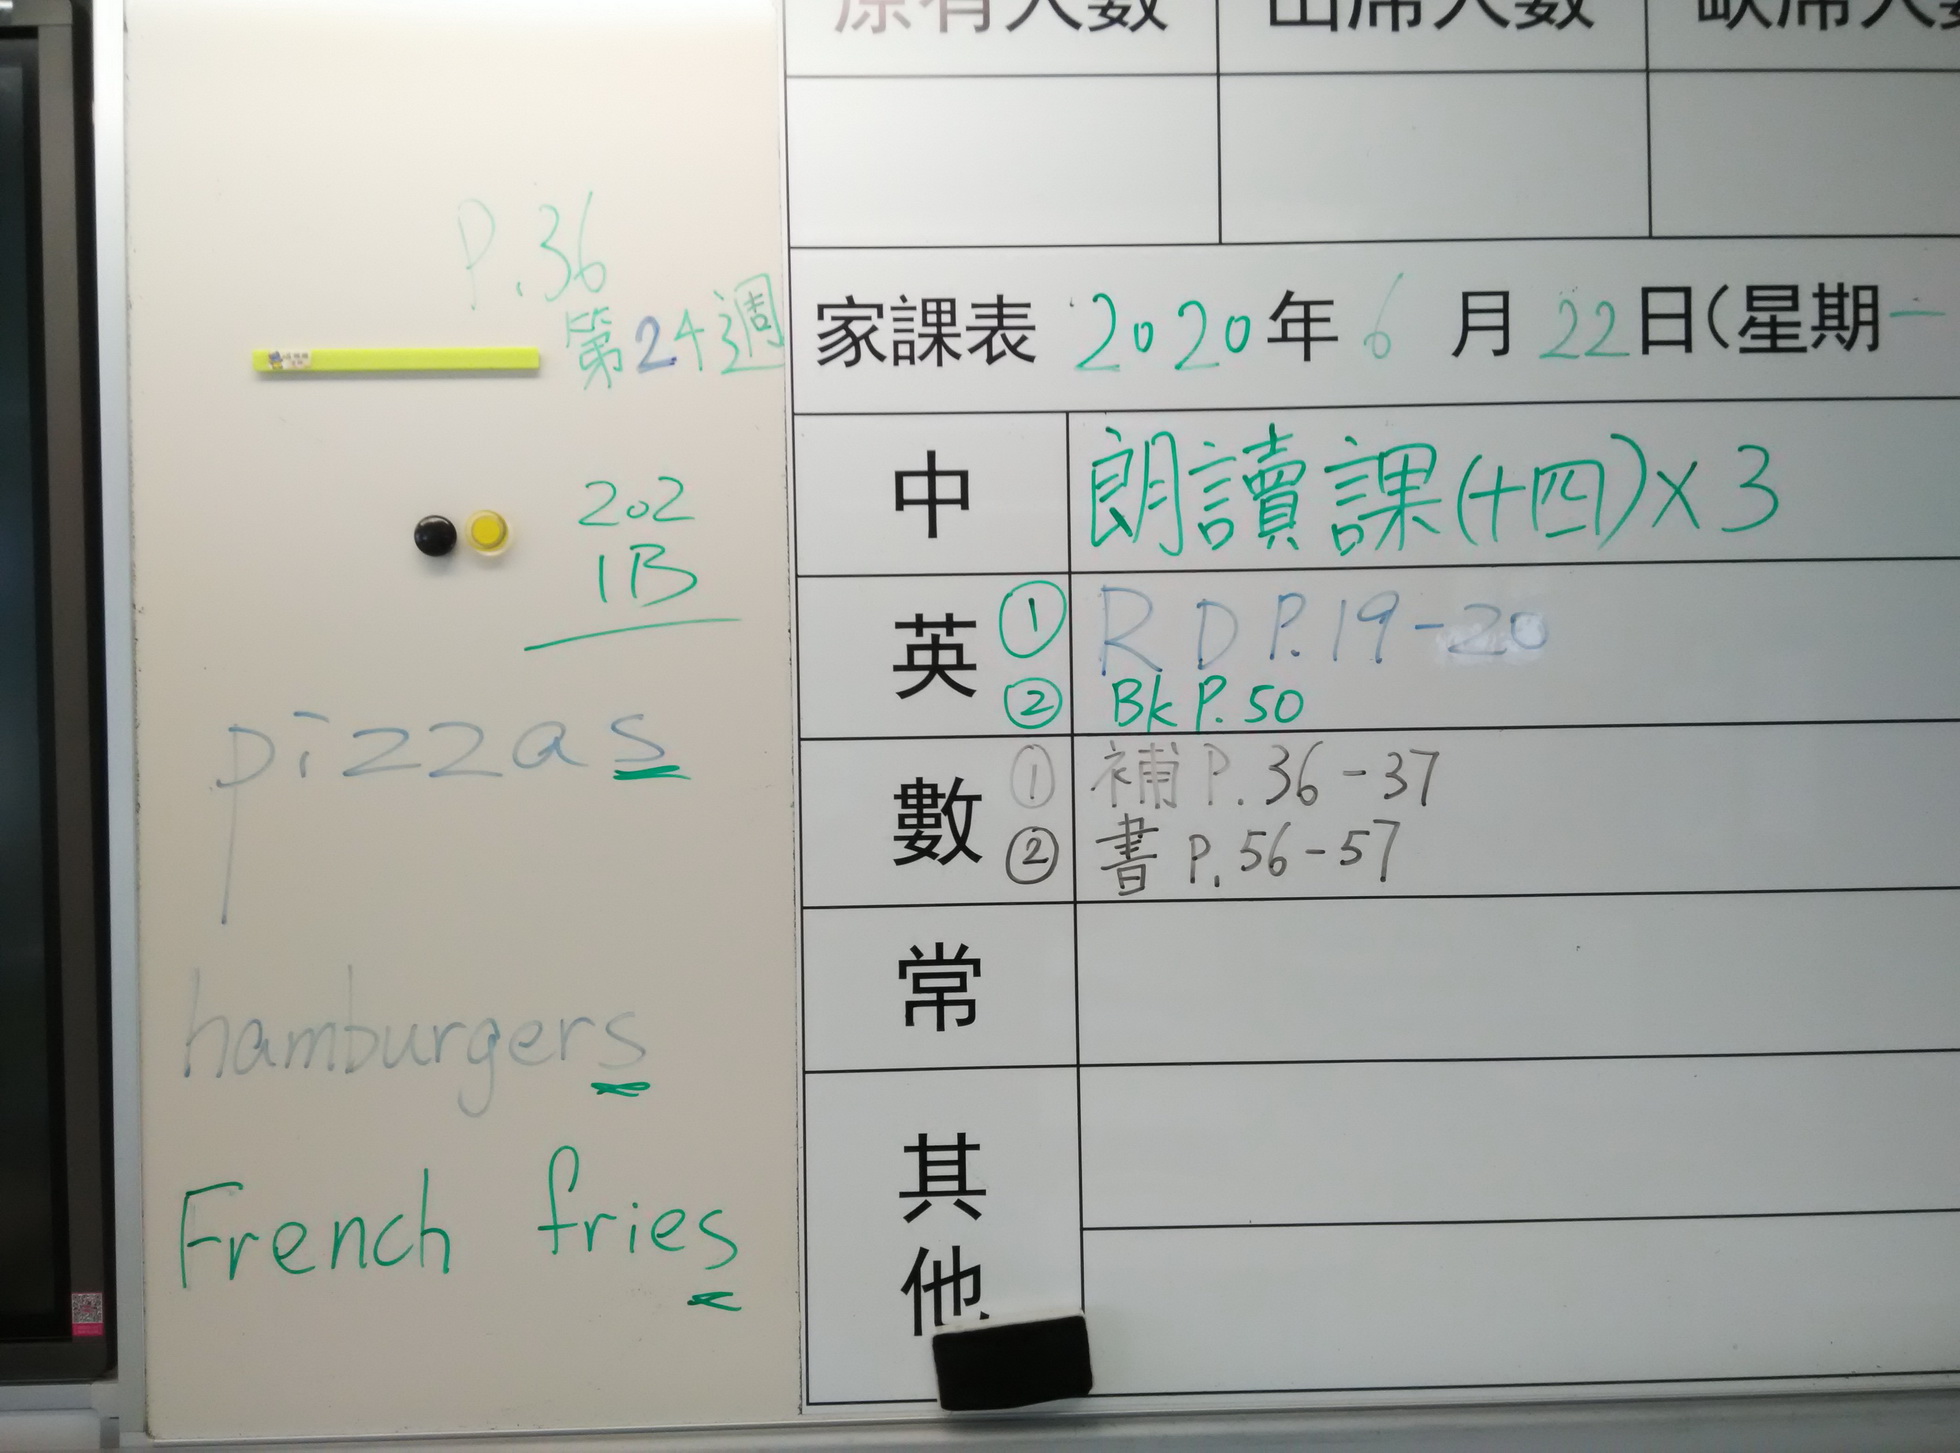 P.36
第24週
202
1B
pizzas
hamburgers
French fries
原有人數 出席人數 缺席人數
家課表 2020年6月22日(星期一
中 朗讀課(十四)×3
英 ① RD P.19-20
② Bk P.50
數 ① 補 P.36-37
② 書 P.56-57
常
其他